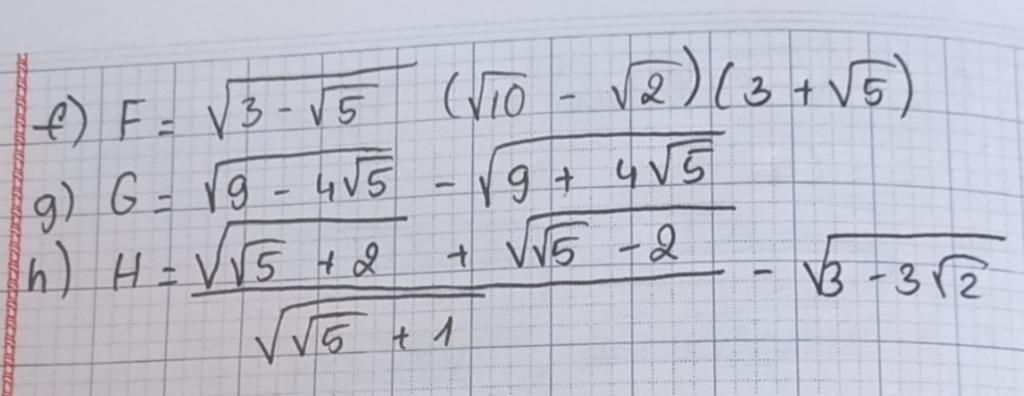 f) F = √(3 - √5) (√10 - √2)(3 + √5)
g) G = √(9 - 4√5) - √(9 + 4√5)
h) H = (√(√5 + 2) + √(√5 - 2)) / √(√5 + 1) - √(3 - 3√2)